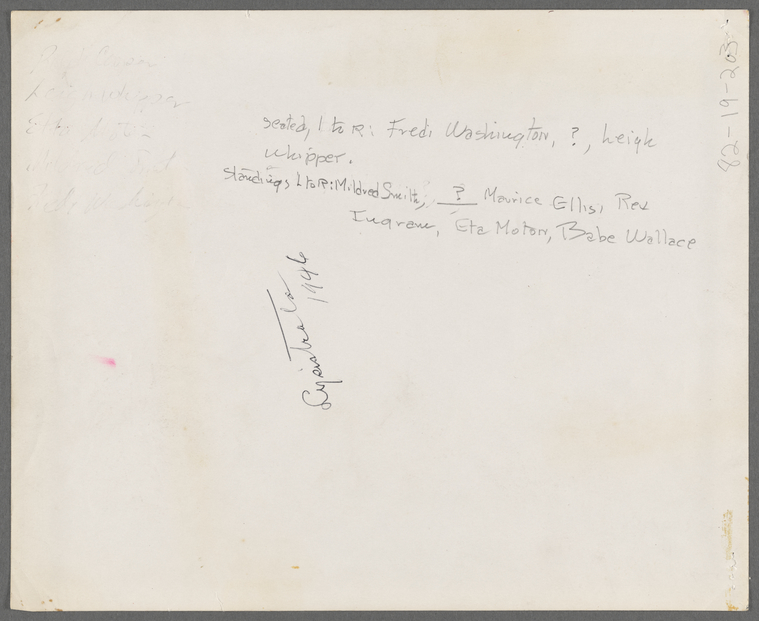 seated, l to R: Fredi Washington, ?, Leigh
Whipper.
Standing, L to R: Mildred Smith, ? Maurice Ellis, Rex
Ingram, Eta Moton, Babe Wallace
Lysistrata
1946
82-19-203